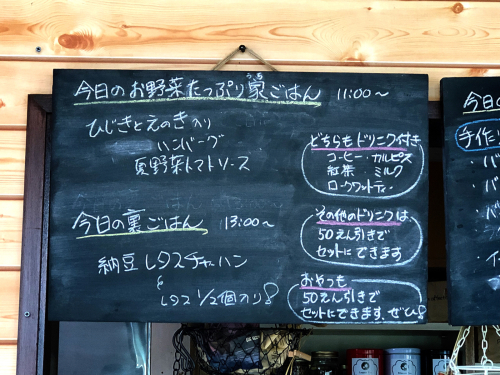 今日のお野菜たっぷり家ごはん 11:00〜
うち
ひじきとえのき入り
ハンバーグ
夏野菜トマトソース
今日の裏ごはん 13:00〜
納豆レタスチャーハン
レタス1/2個入り
どちらもドリンク付き
コーヒー・カルピス
紅茶・ミルク
ローズヒップティー
その他のドリンクは、
50えん引きで
セットにできます
おやつも
50えん引きで
セットにできます、ぜひ!
今日の
手作